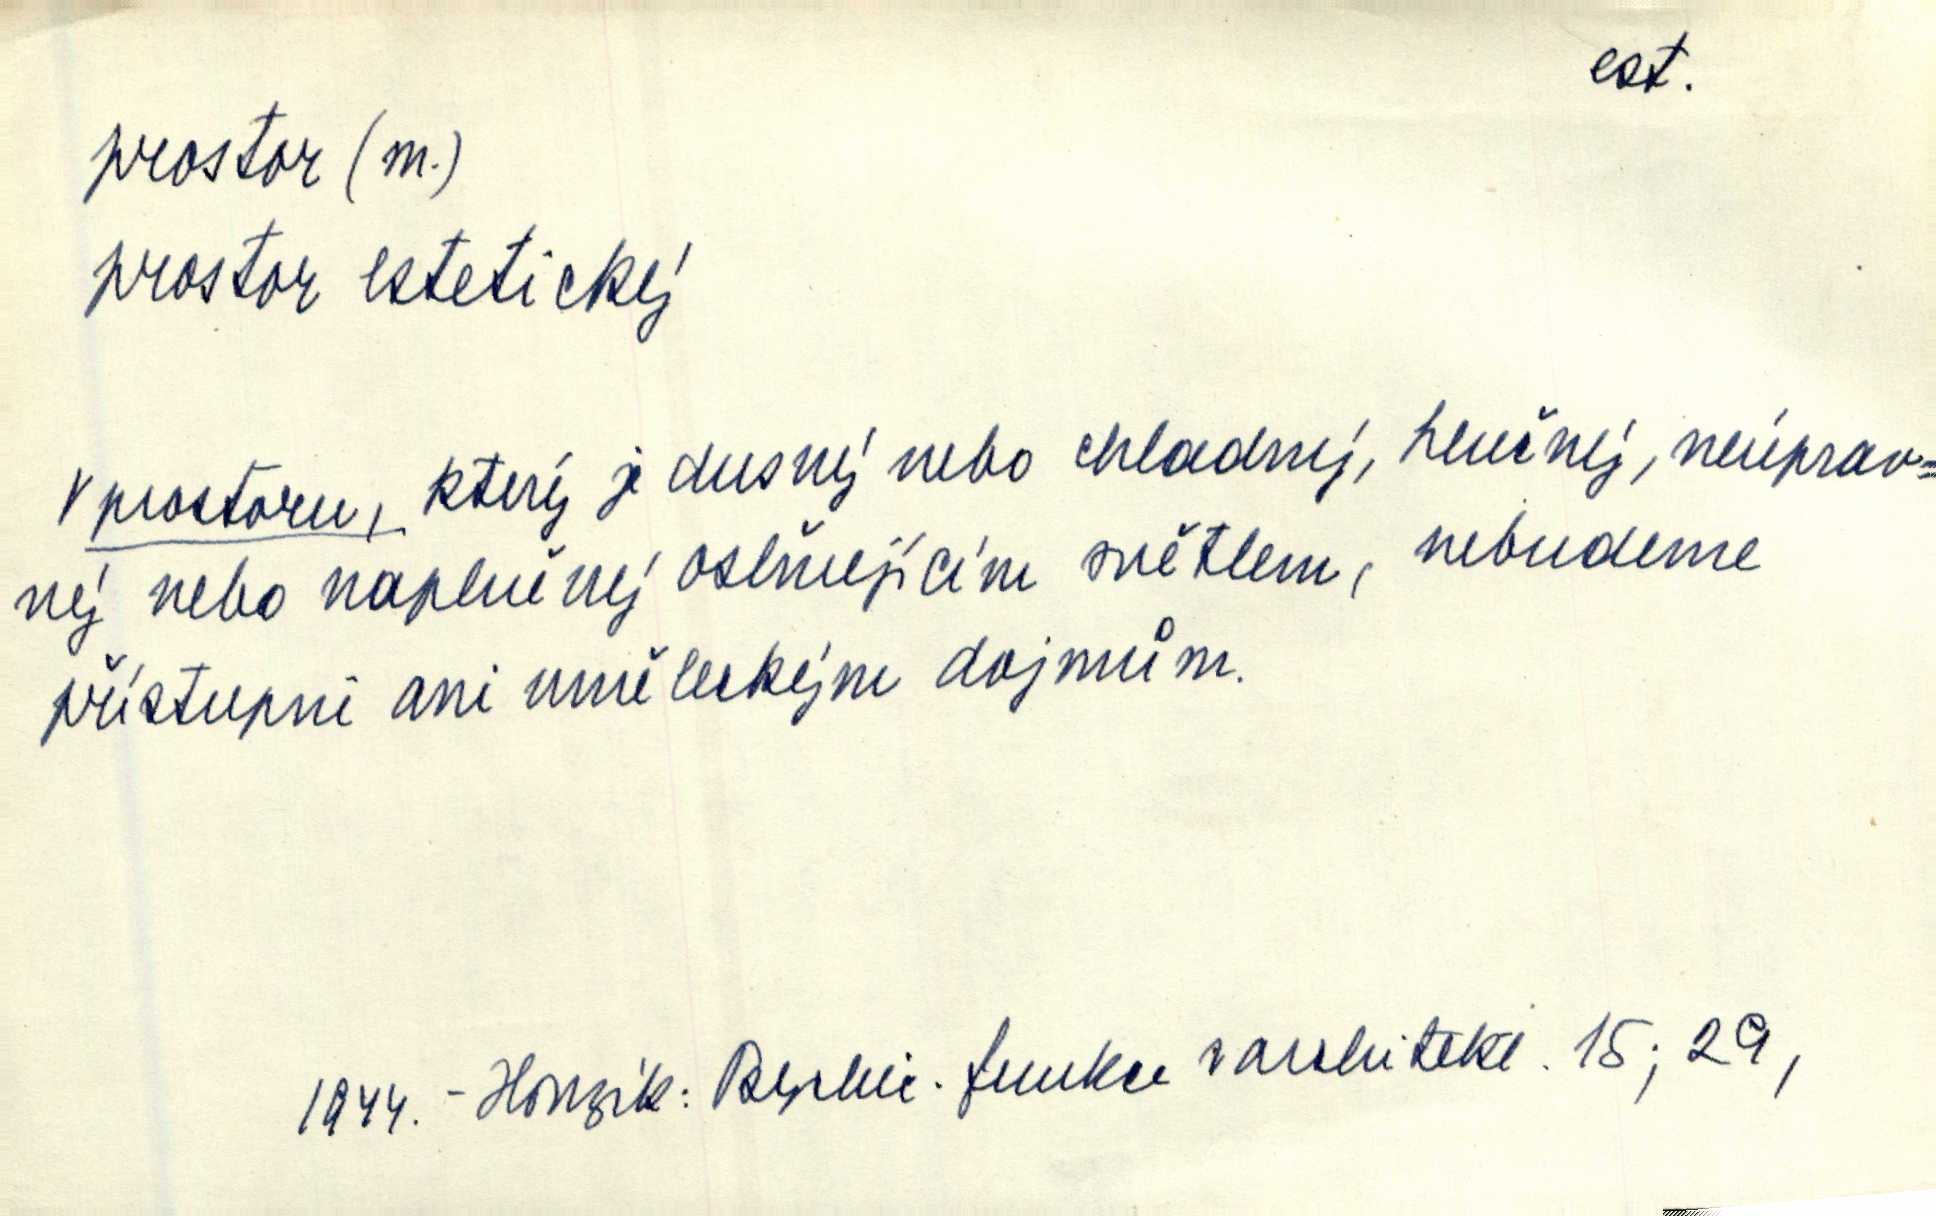 est.
prostor (m.)
prostor estetický
V prostoru, který je dusný nebo chladný, hlučný, neúprav=
ný nebo naplněný oslňujícím světlem, nebudeme
přístupni ani uměleckým dojmům.
1944. - Honzík: Psychic. funkce v architekt. 15; 29,